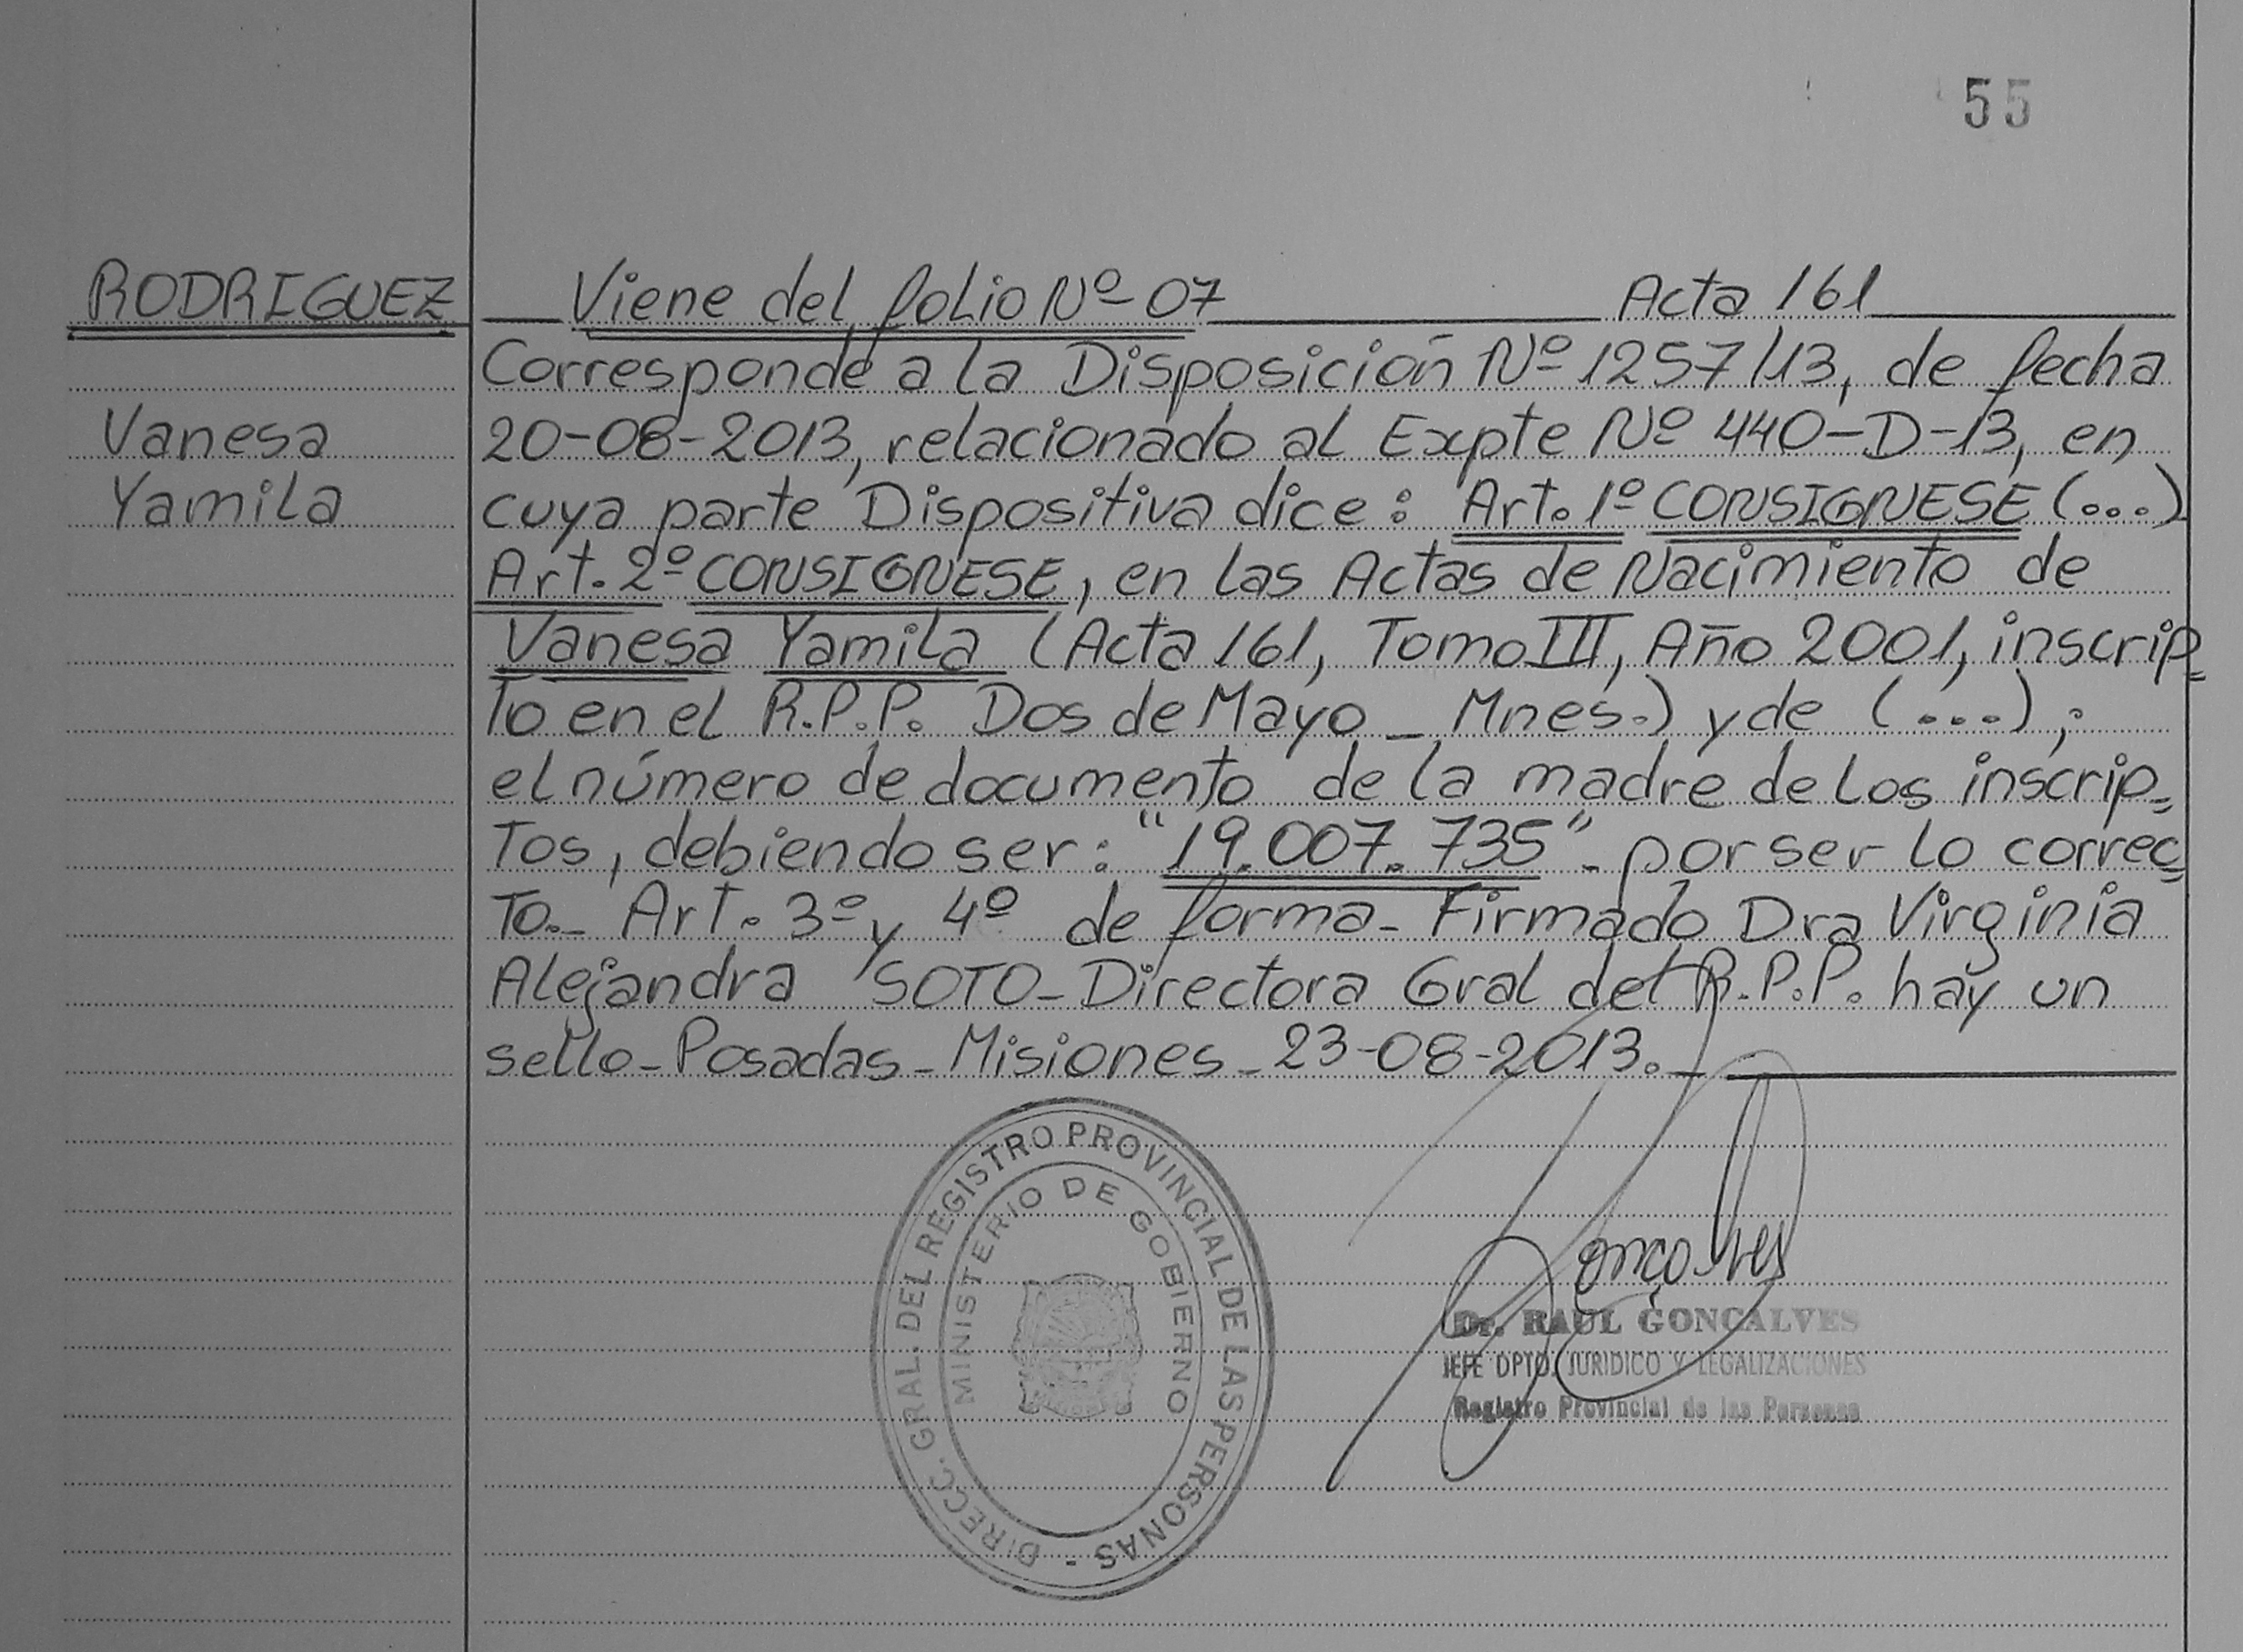 55
RODRIGUEZ
Vanesa
Yamila
Viene del folio Nº 07 Acta 161
Corresponde a la Disposición Nº 1257/13, de fecha
20-08-2013, relacionado al Expte Nº 440-D-13, en
cuya parte Dispositiva dice: Art. 1º CONSIGNESE (...)
Art. 2º CONSIGNESE, en las Actas de Nacimiento de
Vanesa Yamila (Acta 161, Tomo III, Año 2001, inscrip=
to en el R.P.P. Dos de Mayo _ Mnes.) y de (...) ;
el número de documento de la madre de los inscrip=
tos, debiendo ser: "19.007.735"- por ser lo correc=
to._ Art. 3º y 4º de forma- Firmado Dra Virginia
Alejandra SOTO_ Directora Gral del R.P.P. hay un
sello_ Posadas_ Misiones_ 23-08-2013._
DIRECC. GRAL. DEL REGISTRO PROVINCIAL DE LAS PERSONAS -
MINISTERIO DE GOBIERNO
Gonçalves
Dr. RAUL GONCALVES
JEFE DPTO. JURIDICO Y LEGALIZACIONES
Registro Provincial de las Personas